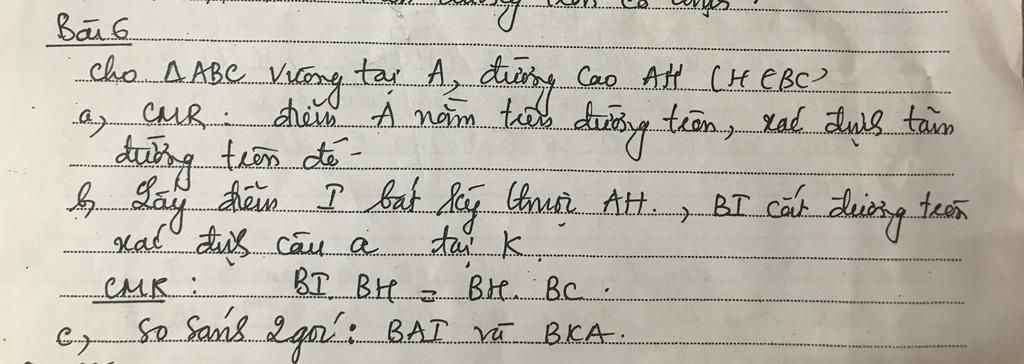 Bài 6
Cho ΔABC vuông tại A, đường cao AH (H ∈ BC)
a, CMR: điểm A nằm trên đường tròn, xác định tâm
đường tròn đó -
b, Lấy điểm I bất kỳ thuộc AH., BI cắt đường tròn
xác định câu a tại K.
CMR: BI. BH = BH. BC.
c, So sánh 2 góc: BAI và BKA.